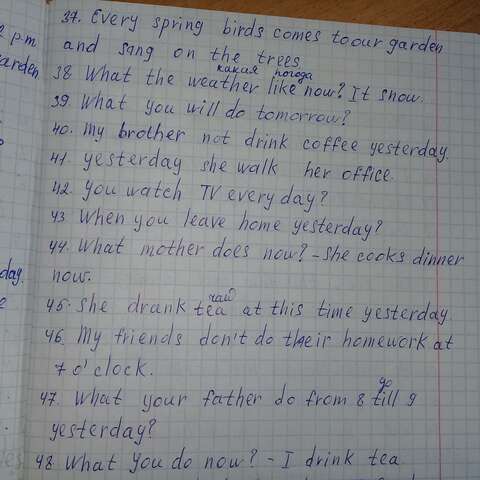 37. Every spring birds comes to our garden
and sang on the trees
какая погода
38 What the weather like now? It snow.
39. What you will do tomorrow?
40. My brother not drink coffee yesterday.
41. yesterday she walk her office.
42. you watch TV every day?
43 When you leave home yesterday?
44. What mother does now? - She cooks dinner
now.
чаю
45. She drank tea at this time yesterday.
46. My friends don't do their homework at
7 o'clock.
до
47. What your father do from 8 till 9
yesterday?
48. What you do now? - I drink tea
2 p.m
arden
day.